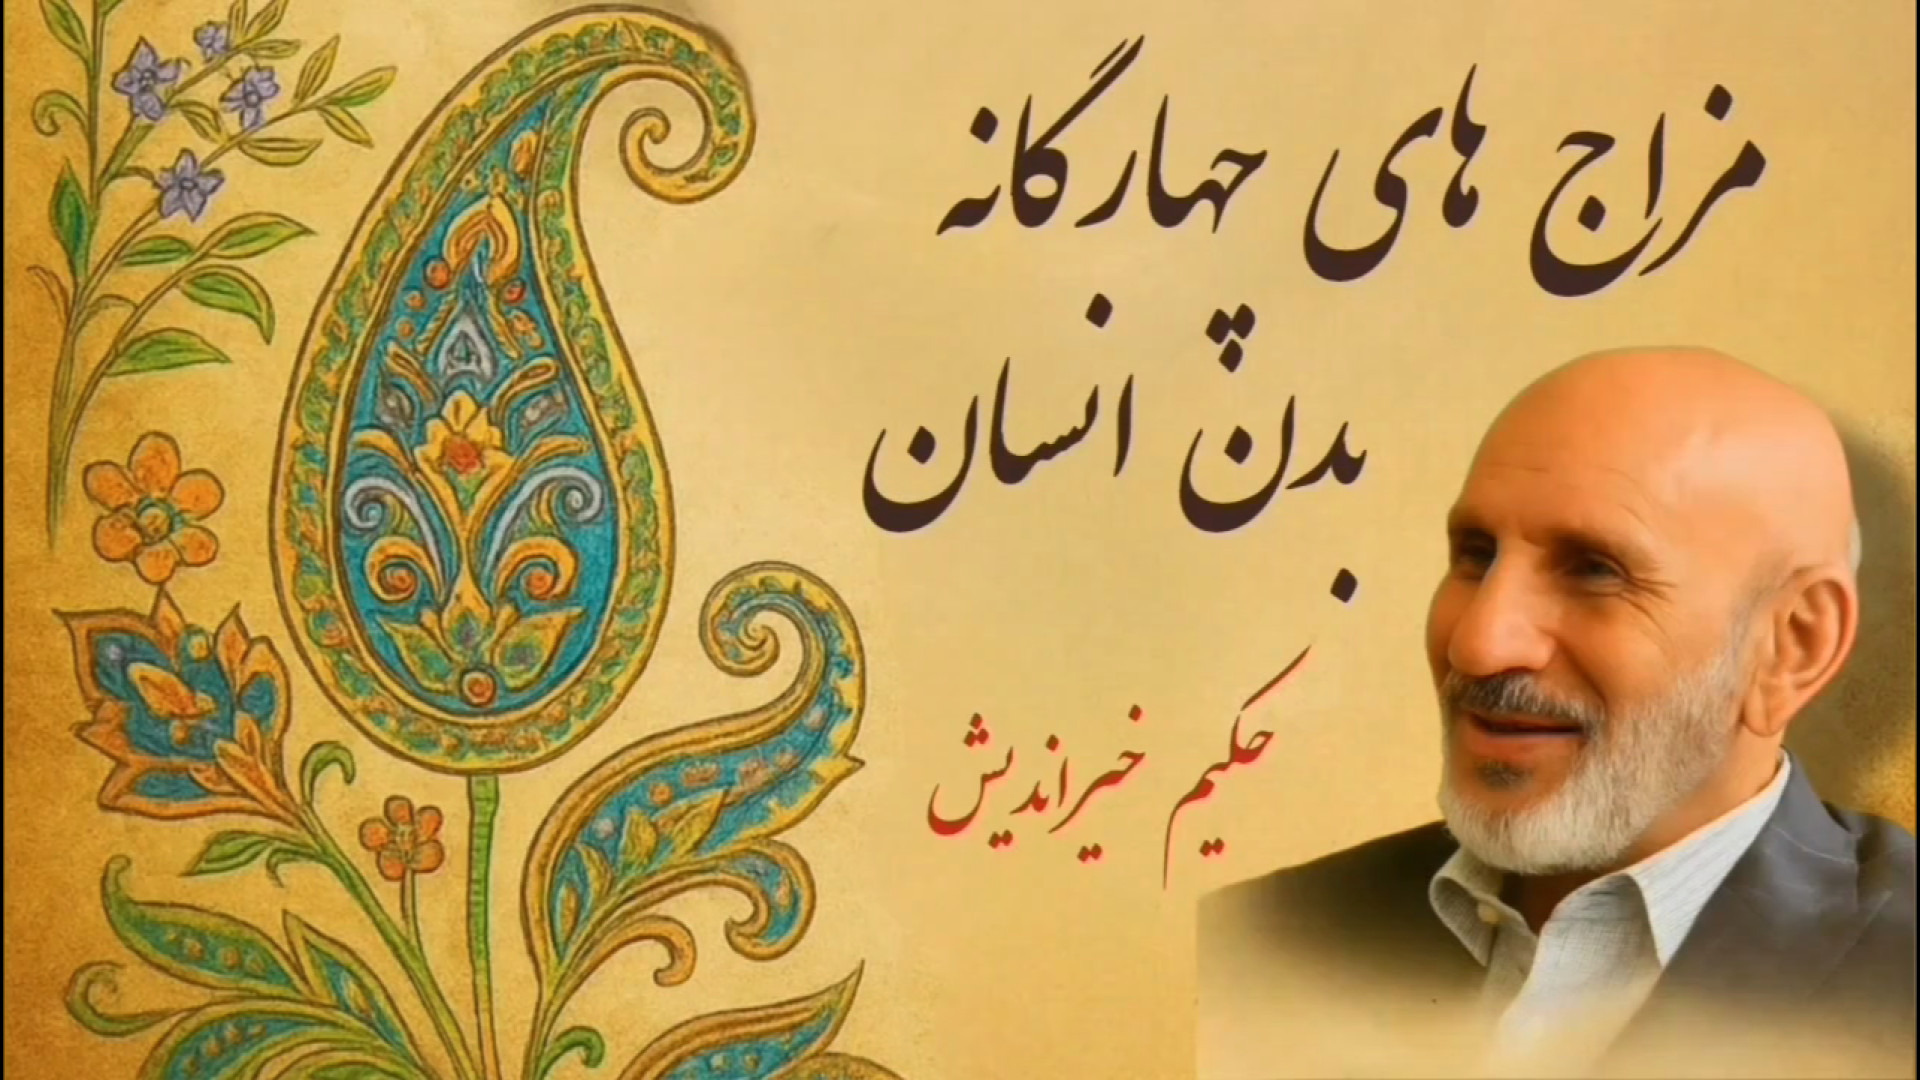 مزاج های چهارگانه
بدن انسان
حکیم خیراندیش